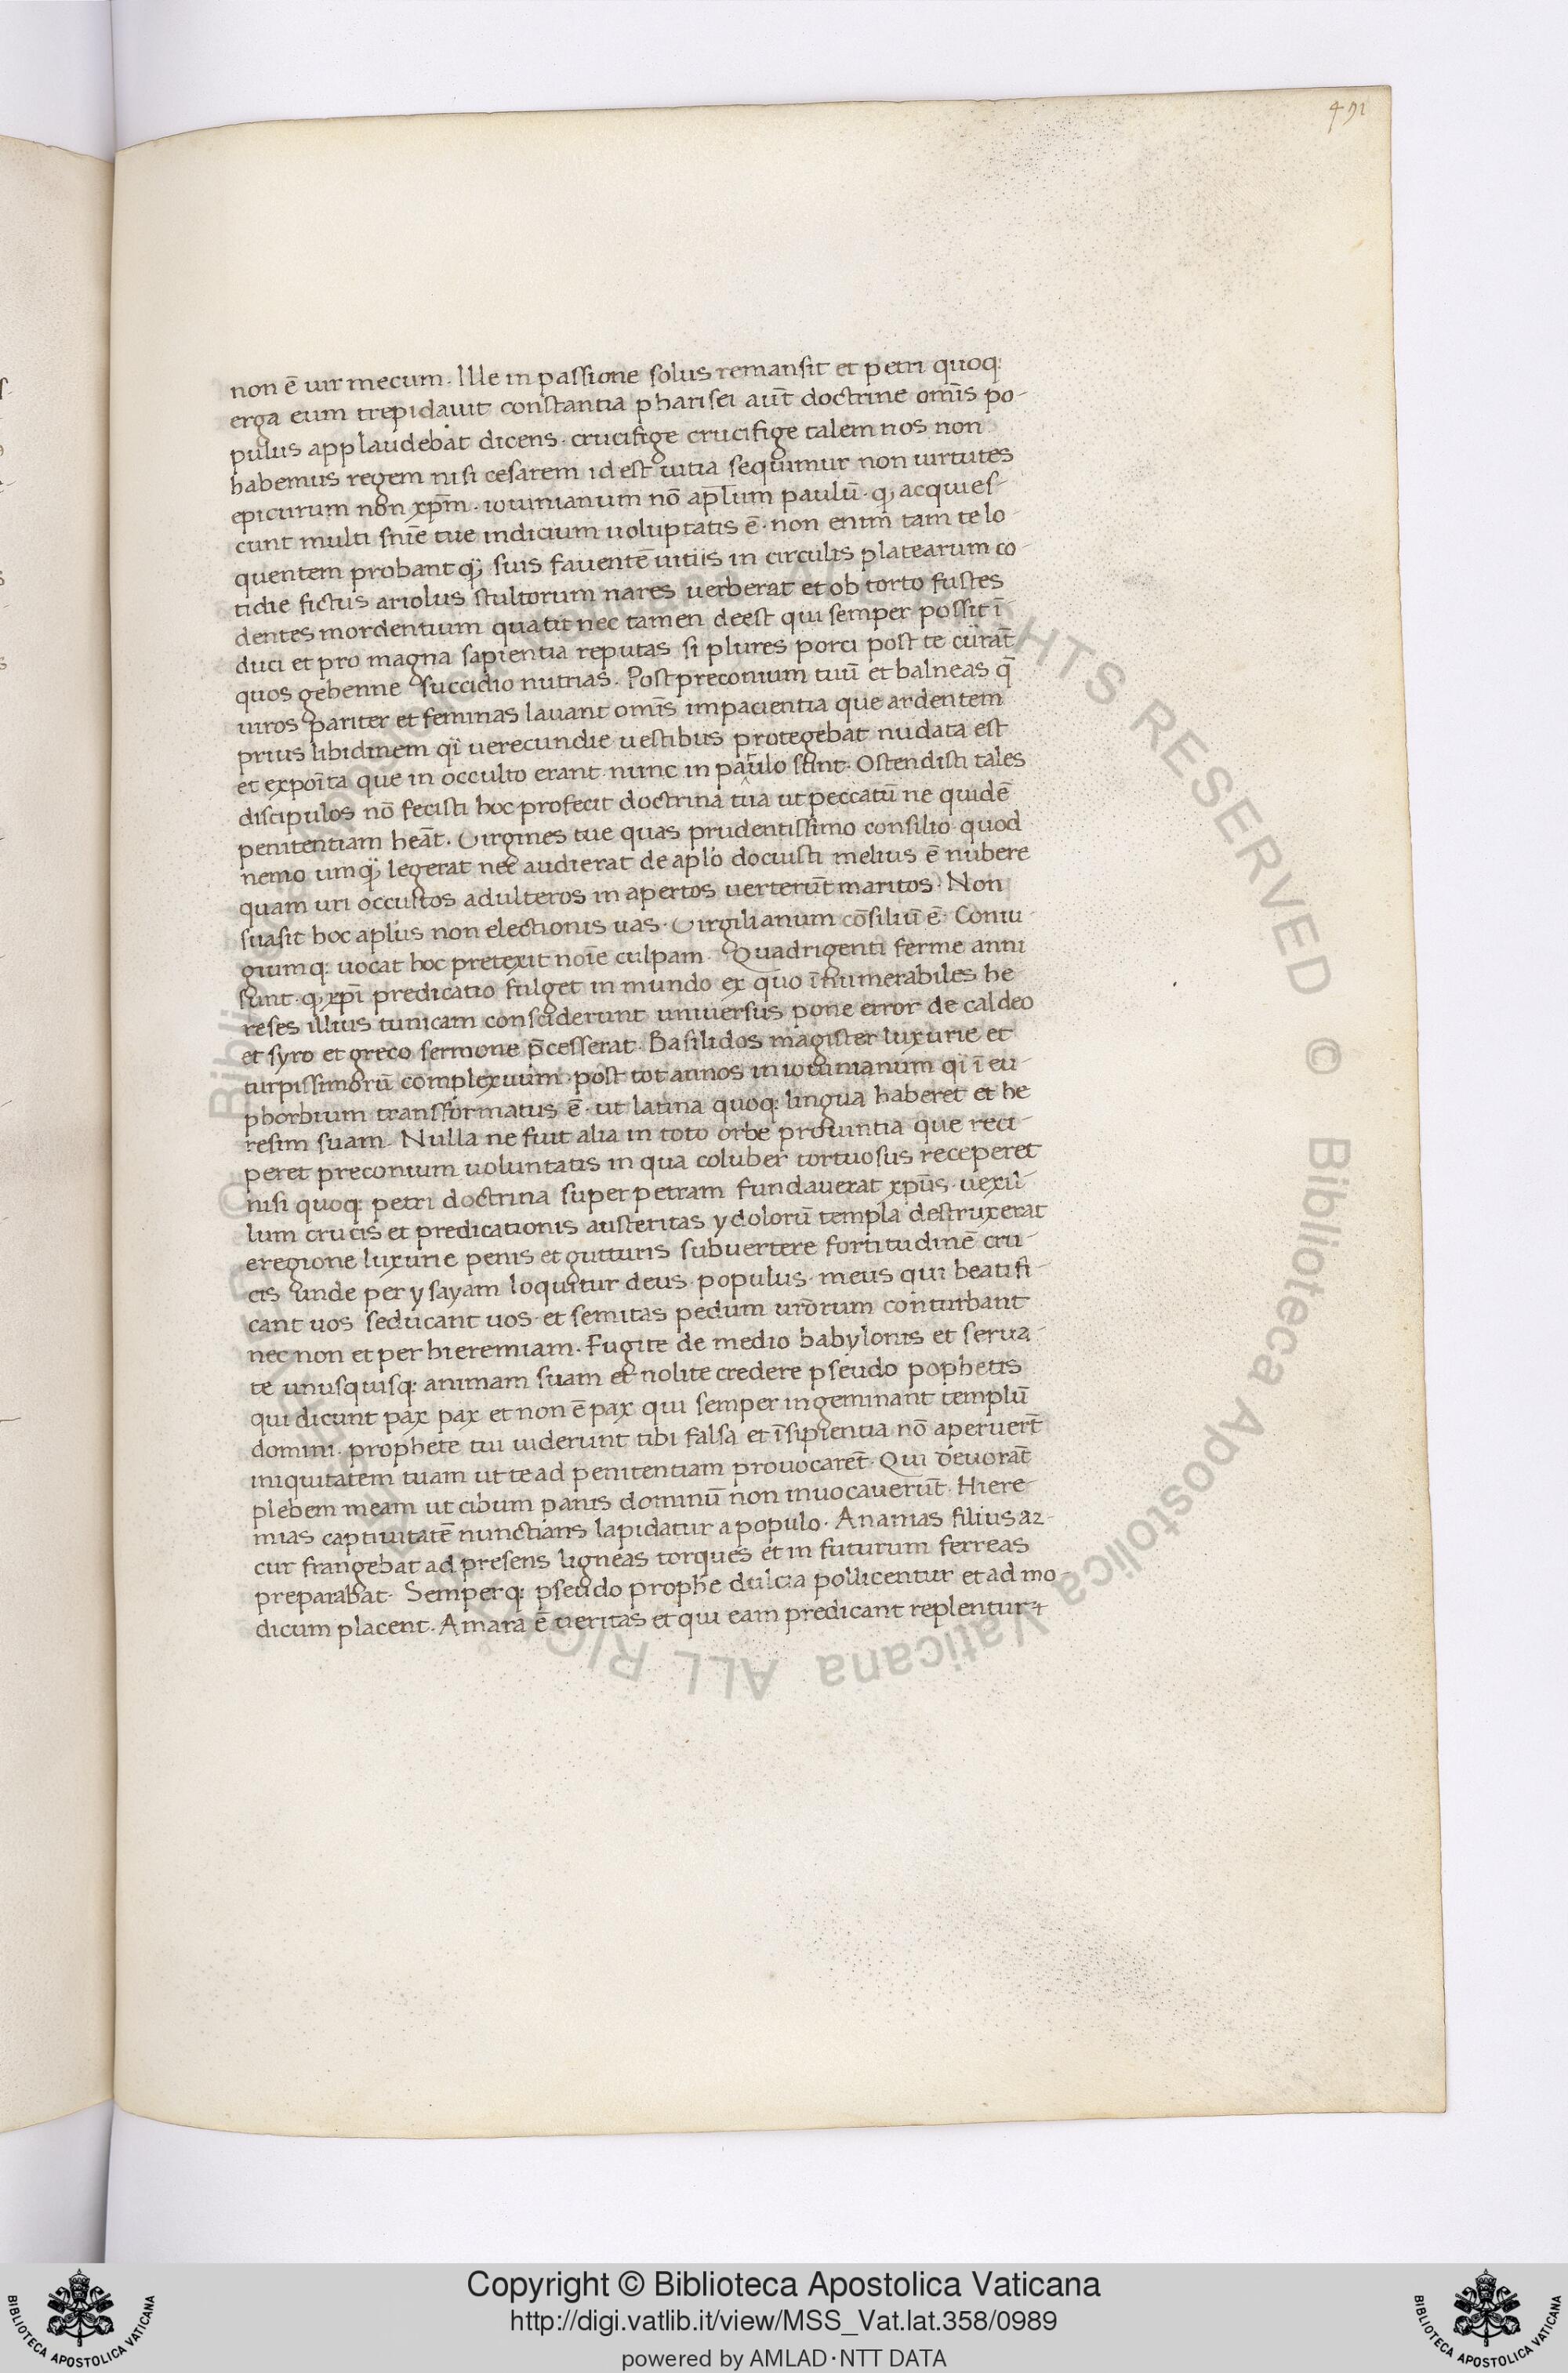 491
non ē uir mecum. Ille in passione solus remansit et petri quoq:
erga eum trepidauit constantia pharisei aūt doctrine om̄s po-
pulus applaudebat dicens. crucifige crucifige talem nos non
habemus regem nisi cesarem id est uitia sequimur non uirtutes
epicurum non xp̄m. iouinianum nō ap̄lum paulū. qꝫ acquies-
cunt multi sn̄ie tue indicium uoluptatis ē. non enim tam te lo-
quentem probant qꝫ suis fauentē uitiis in circulis platearum co-
tidie fictus ariolus stultorum nares uerberat et ob torto fustes
dentes mordentium quatit nec tamen deest qui semper possit ī
duci et pro magna sapientia reputas si plures porci post te curāt
quos gehenne succidio nutrias. Post preconium tuū et balneas q̄
uiros pariter et feminas lauant om̄s impacientia que ardentem
prius libidinem q̄i uerecundie uestibus protegebat nudata est
et expoīta que in occulto erant nunc in paulo sunt. Ostendisti tales
discipulos nō fecisti hoc profecit doctrina tua ut peccatū ne quidē
penitentiam heāt. Virgines tue quas prudentissimo consilio quod
nemo umqꝫ legerat nec audierat de aplo docuisti melius ē nubere
quam uri occultos adulteros in apertos uerterūt maritos. Non
suasit hoc aplus non electionis uas. Virgilianum cōsiliū ē. Coniu-
giumq: uocat hoc pretexit noīe culpam. Quadrigenti ferme anni
sunt. qꝫ xp̄i predicatio fulget in mundo ex quo īnumerabiles he-
reses illius tunicam consciderunt uniuersus pone error de caldeo
et syro et greco sermone p̄cesserat. Basilidos magister luxurie et
turpissimorū complexuum. post tot annos in iouinianum q̄i ī eu-
phorbium transformatus ē. ut latina quoq: lingua haberet et he
resim suam. Nulla ne fuit alia in toto orbe prouintia que reci-
peret preconium uoluntatis in qua coluber tortuosus receperet
nisi quoq: petri doctrina super petram fundauerat xp̄us. uexil-
lum crucis et predicationis austeritas ydolorū templa destruxerat
eregione luxurie penis et gutturis subuertere fortitudinē cru-
cis unde per ysayam loquitur deus. populus. meus qui beatifi-
cant uos seducant uos. et semitas pedum ur̄orum conturbant
nec non et per hieremiam. Fugite de medio babylonis et serua-
te unusquisq: animam suam et nolite credere pseudo pophetis
qui dicunt pax pax et non ē pax qui semper ingeminant templū
domini. prophete tui uiderunt tibi falsa et īsipientia nō aperuert̄
iniquitatem tuam ut te ad penitentiam prouocarēt. Qui deuorāt
plebem meam ut cibum panis dominū non inuocauerūt. Hiere-
mias captiuitatē nunctians lapidatur a populo. Ananias filius az-
cur frangebat ad presens ligneas torques et in futurum ferreas
preparabat. Semperq: pseudo prophe dulcia pollicentur et ad mo-
dicum placent. Amara ē ueritas et qui eam predicant replentur
© Biblioteca Apostolica Vaticana ALL RIGHTS RESERVED
Copyright © Biblioteca Apostolica Vaticana
http://digi.vatlib.it/view/MSS_Vat.lat.358/0989
powered by AMLAD·NTT DATA
BIBLIOTECA APOSTOLICA VATICANA
BIBLIOTECA APOSTOLICA VATICANA